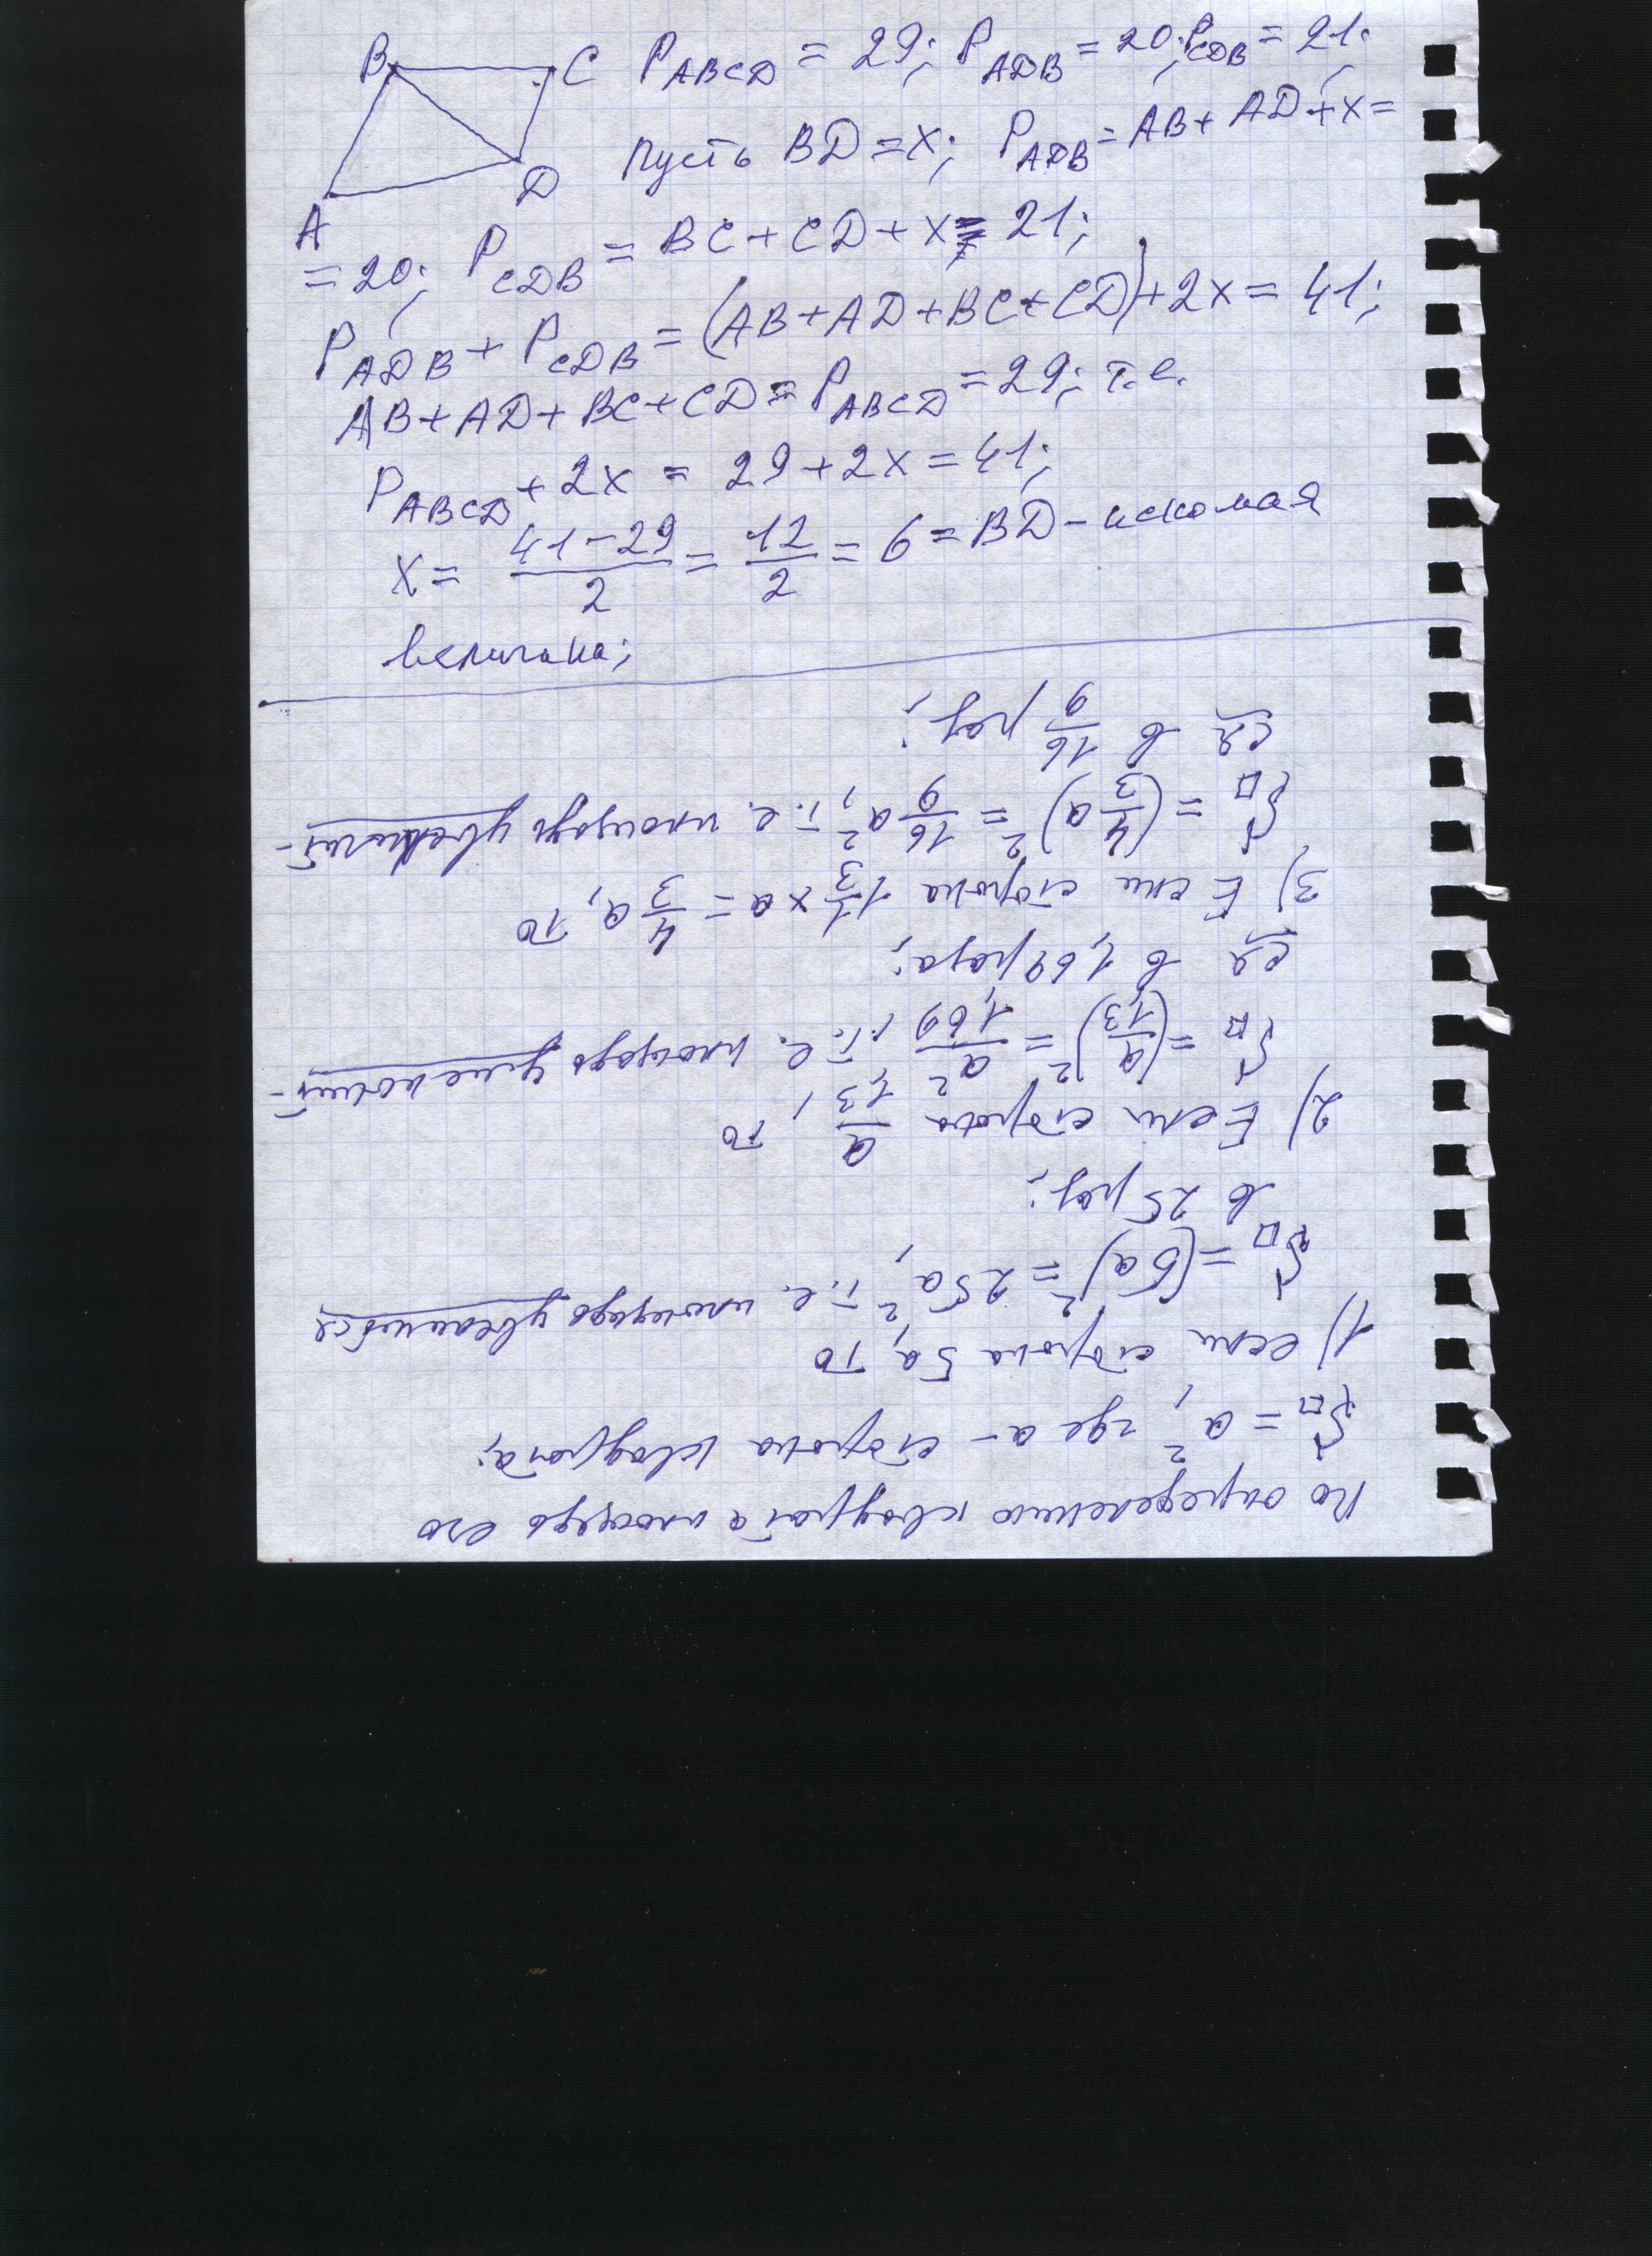 B C P_ABCD = 29; P_ADB = 20; P_CDB = 21;
Пусть BD = x; P_ADB = AB + AD + x =
A D
= 20; P_CDB = BC + CD + x = 21;
P_ADB + P_CDB = (AB + AD + BC + CD) + 2x = 41;
AB + AD + BC + CD = P_ABCD = 29; т.е.
P_ABCD + 2x = 29 + 2x = 41;
x = (41 - 29)/2 = 12/2 = 6 = BD - искомая
величина;
По определению квадрата площадь его
S□ = a², где a - сторона квадрата;
1) если сторона 5a, то
S□ = (5a)² = 25a², т.е. площадь увеличится
в 25 раз;
2) Если сторона a/1,3, то
S□ = (a/1,3)² = a²/1,69, т.е. площадь уменьшит-
ся в 1,69 раза;
3) Если сторона 1 1/3 × a = 4/3 a, то
S□ = (4/3 a)² = 16/9 a², т.е. площадь увеличит-
ся в 16/9 раз;